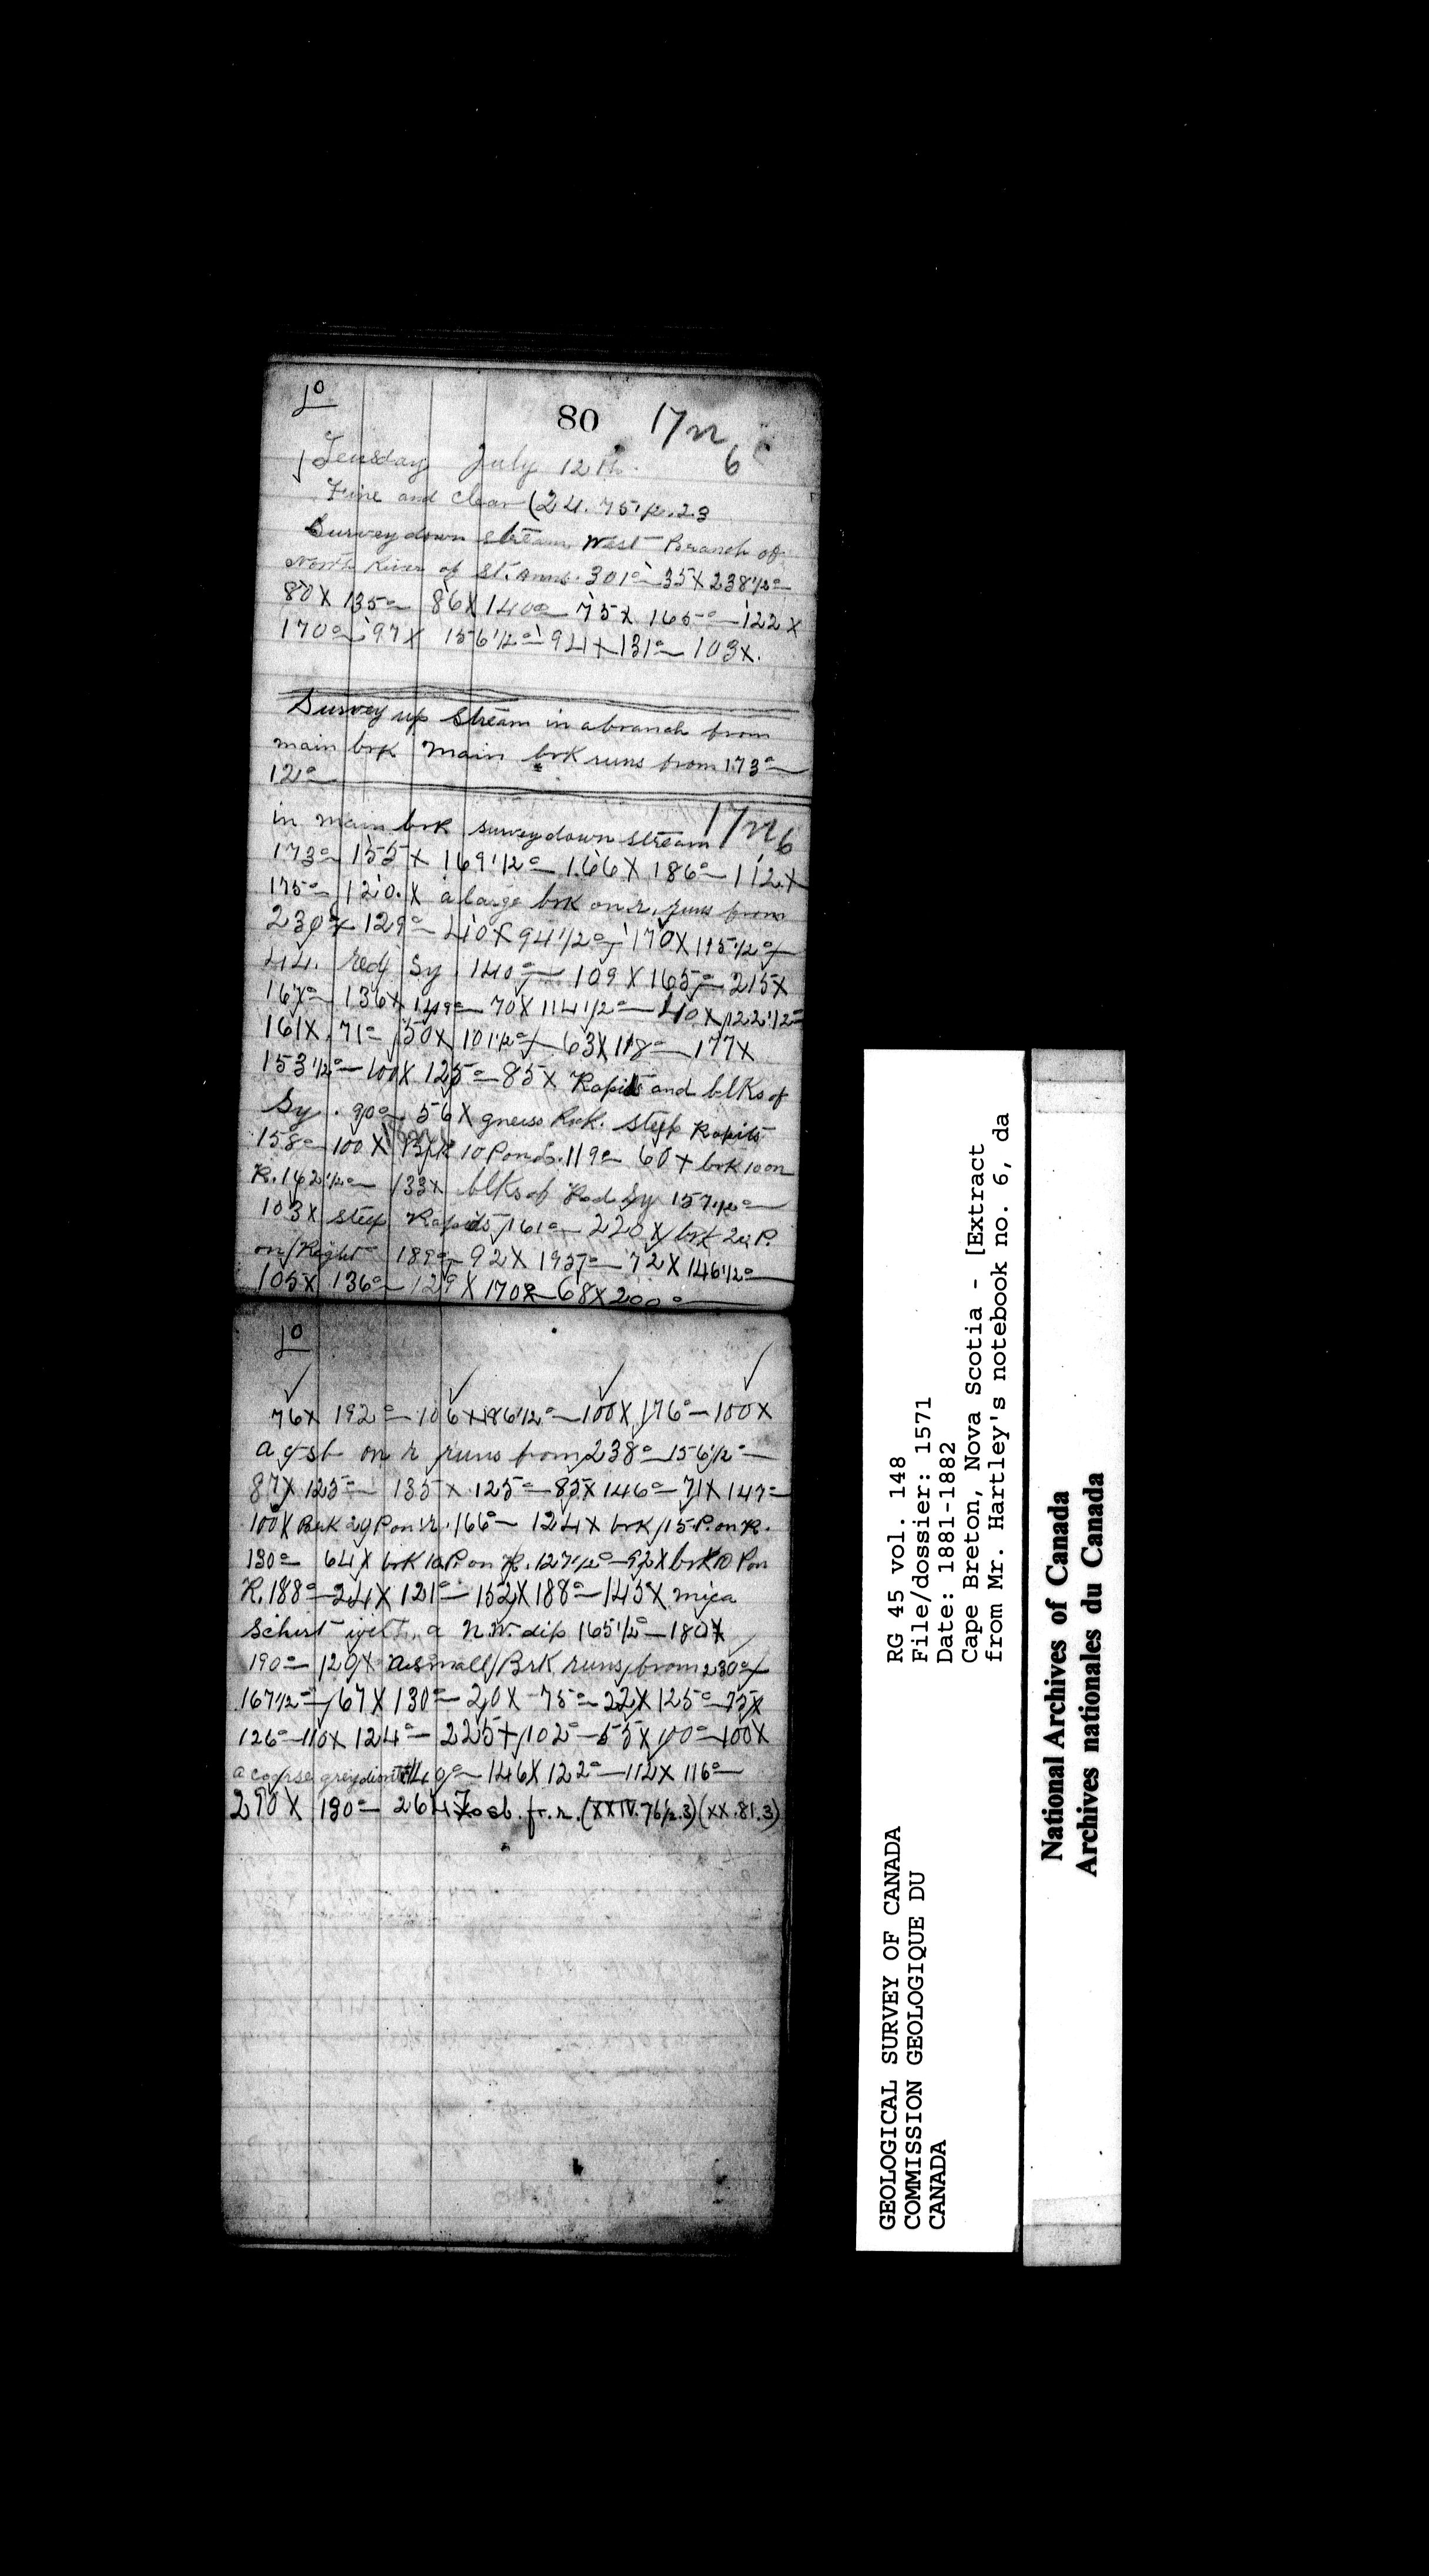 10
80 17n6
Teusday July 12th.
Fine and clear (24.75.p.23
Survey down stream West Branch of
North River of St. Anns. 301°—35X 238½°—
80X 135°— 86X 140°— 75X 165°—122X
170°—97X 156½°—94X 131°—103X.
Survey up Stream in a branch from
main brk Main brk runs from 173°—
12°—
17n6
in main brk survey down stream
173°—155X 169½°—166X 186°—112X
175°—120.X a large brk on r. runs from
230°X 129°—40X 94½°—170X 115½°—
44. red Sy. 140°—109X 165°—215X
167°—136X 149°—70X 114½°—40X 122½°
161X. 71°—50X 101½°—63X 118°—177X
153½°—100X 125°—85X Rapids and blks of
Sy. 90°—56X gneiss Rok. steep Rapids
158°—100X Brk 10 Pon L. 119°—60X brk 10 on
R. 162½°—133X blks of Red Sy 157½°—
103X steep Rapids 161°—220X brk 20 P.
on Right 189°—92X 195°—72X 146½°—
105X 136°—129X 170°—68X 200°—
10
76X 192°—106X 186½°—100X 176°—100X
a g st on r runs from 238°—156½°—
87X 125°—135X 125°—85X 146°—71X 147°—
100X Brk 29 P on r. 166°—124X brk 15 P. on R.
130°—64X brk 10 P. on R. 127½°—92X brk 10 P on
R. 188°—24X 121°—152X 188°—145X mica
Schist with a N.W. dip 165½°—180X
190°—120X a small Brk runs from 230°
167½°—67X 130°—20X 75°—22X 125°—75X
126°—110X 124°—225X 102°—55X 100°—100X
a coarse grey diorite 140°—146X 122°—112X 116°—
290X 130°—264X to sb. fr. r. (XXIV.76½.3)(XX.81.3)
GEOLOGICAL SURVEY OF CANADA
COMMISSION GEOLOGIQUE DU
CANADA
RG 45 vol. 148
File/dossier: 1571
Date: 1881-1882
Cape Breton, Nova Scotia - [Extract
from Mr. Hartley's notebook no. 6, da
National Archives of Canada
Archives nationales du Canada